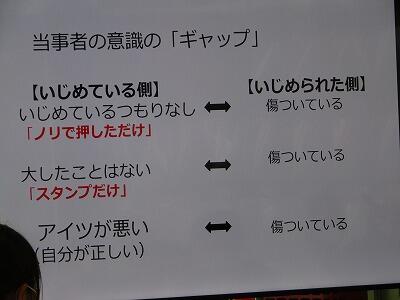 当事者の意識の「ギャップ」
【いじめている側】 【いじめられた側】
いじめているつもりなし ⬌ 傷ついている
「ノリで押しただけ」
大したことはない ⬌ 傷ついている
「スタンプだけ」
アイツが悪い ⬌ 傷ついている
(自分が正しい)